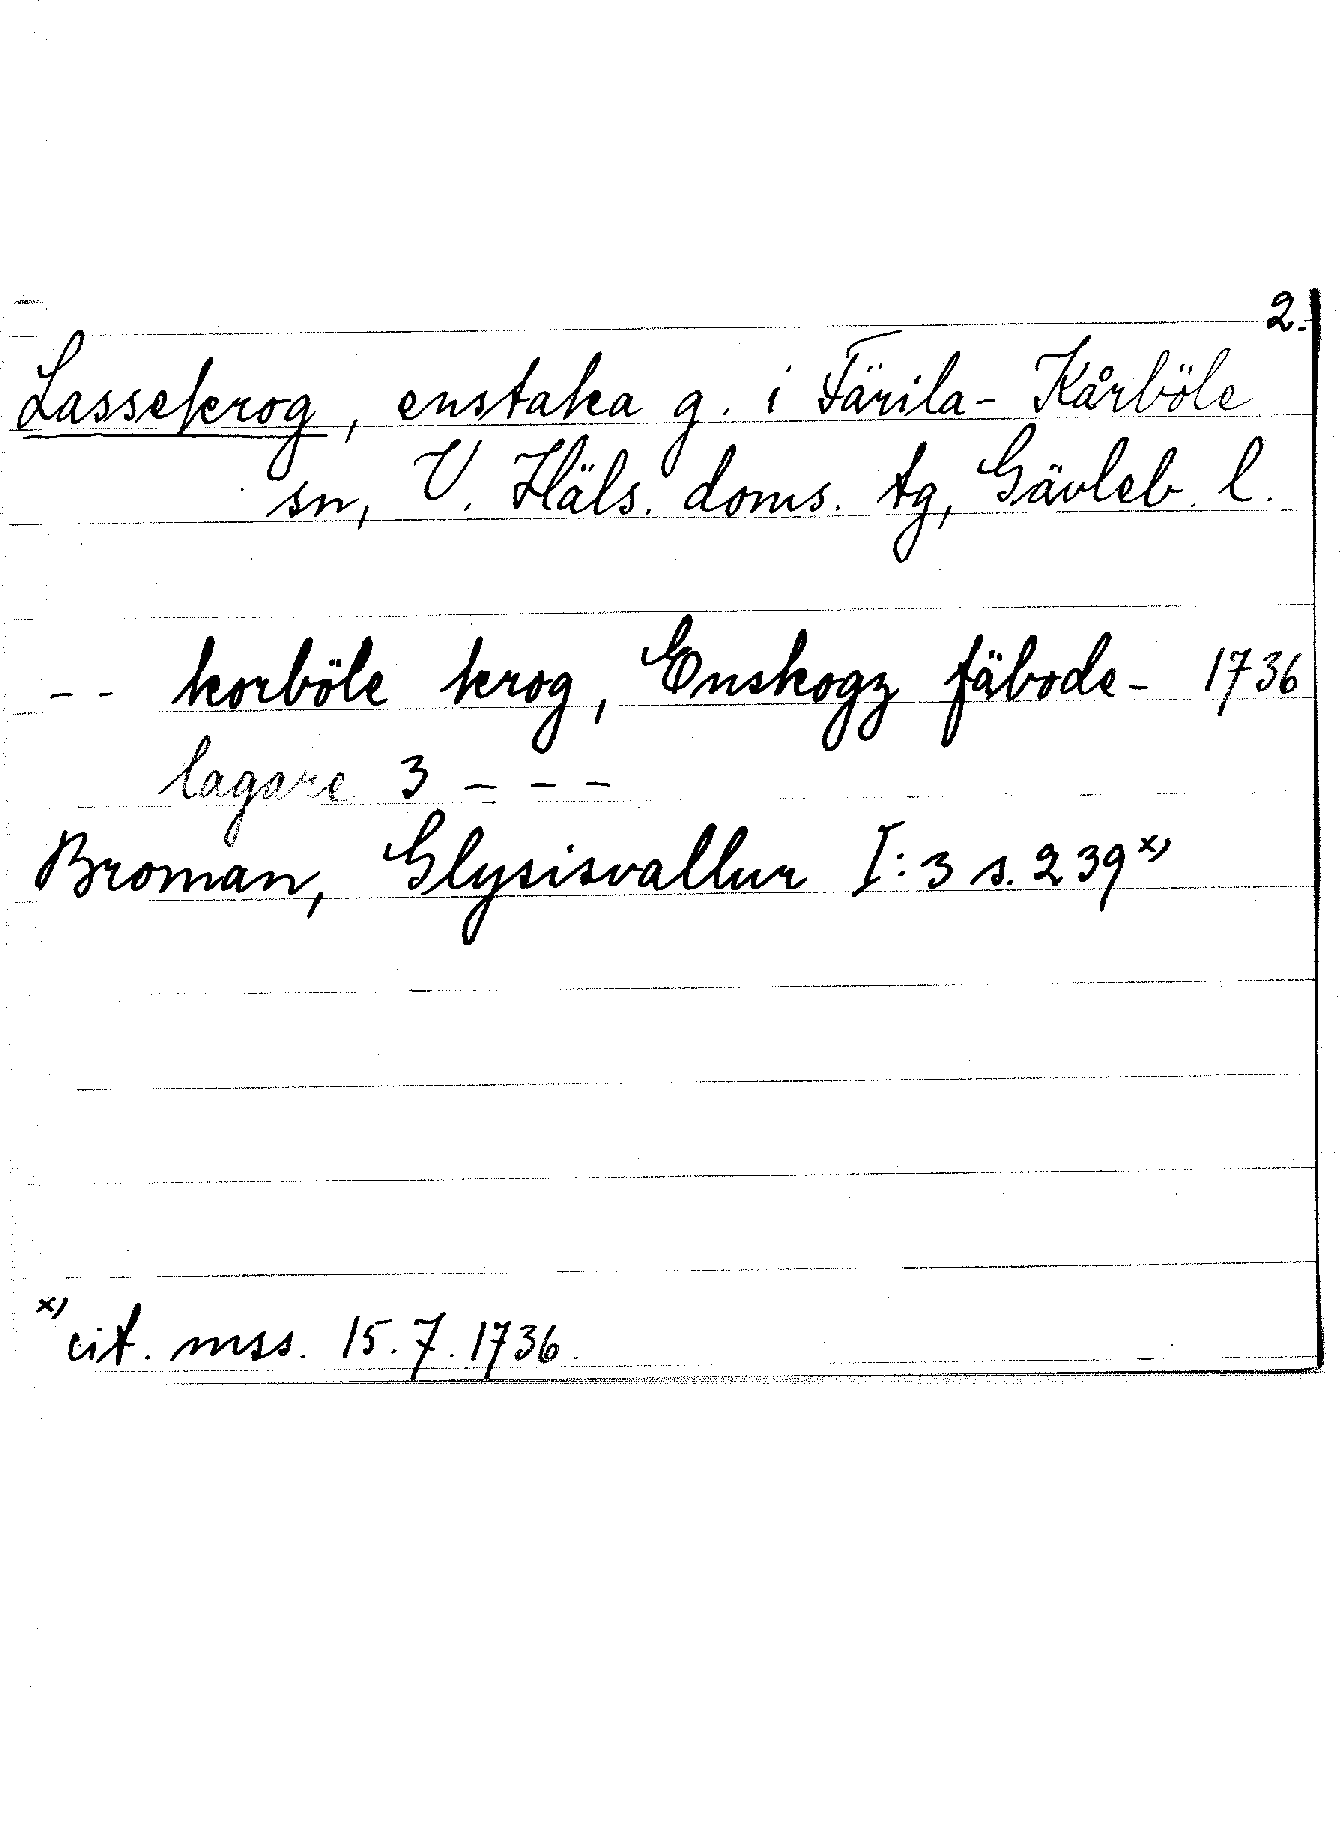 2.
Lassekrog, enstaka g. i Färila- Kårböle
sn, V. Häls. doms. tg, Gävleb. l.
-- korböle krog, Enskogz fäbode- 1736
lagare 3 ---
Broman, Glysisvallur I:3 s. 239 x)
x) cit. mss. 15.7.1736.